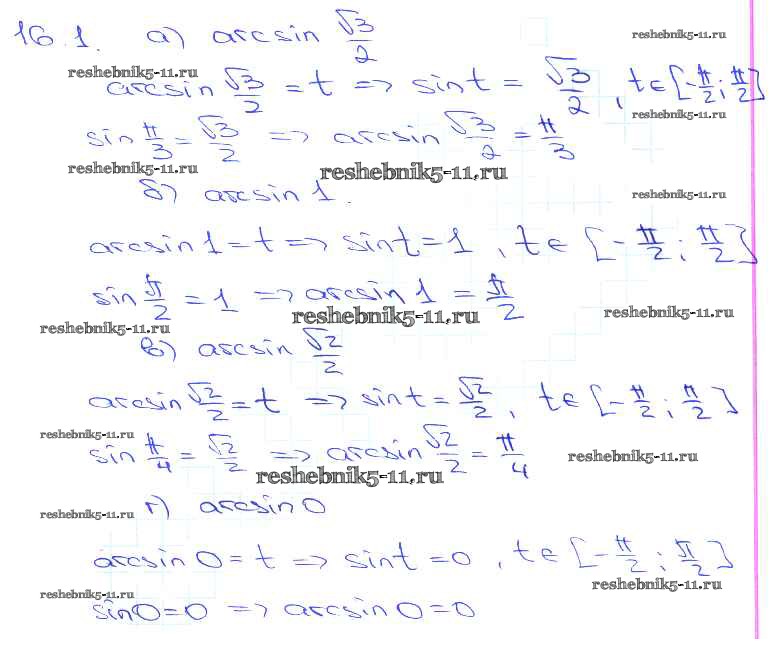 16.1. а) arcsin √3/2
reshebnik5-11.ru
reshebnik5-11.ru
arcsin √3/2 = t => sin t = √3/2, t∈[-π/2; π/2]
reshebnik5-11.ru
sin π/3 = √3/2 => arcsin √3/2 = π/3
reshebnik5-11.ru
reshebnik5-11.ru
б) arcsin 1.
reshebnik5-11.ru
arcsin 1 = t => sin t = 1, t∈[-π/2; π/2]
sin π/2 = 1 => arcsin 1 = π/2
reshebnik5-11.ru
reshebnik5-11.ru
reshebnik5-11.ru
в) arcsin √2/2
arcsin √2/2 = t => sin t = √2/2, t∈[-π/2; π/2]
reshebnik5-11.ru
sin π/4 = √2/2 => arcsin √2/2 = π/4
reshebnik5-11.ru
reshebnik5-11.ru
reshebnik5-11.ru
г) arcsin 0
arcsin 0 = t => sin t = 0, t∈[-π/2; π/2]
reshebnik5-11.ru
reshebnik5-11.ru
sin 0 = 0 => arcsin 0 = 0